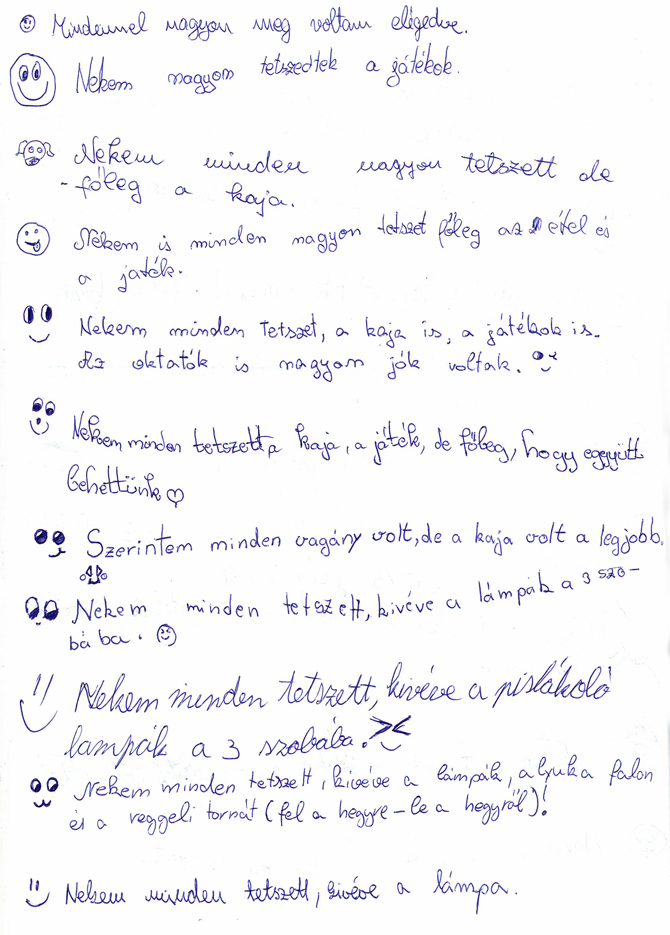 Mindennel nagyon meg voltam elégedve.
Nekem nagyon tetszedtek a játékok.
Nekem minden nagyon tetszett de
- főleg a kaja.
Nekem is minden nagyon tetszet főleg az étel és
a játék.
Nekem minden tetszet, a kaja is, a játékok is.
Az oktatók is nagyom jók voltak.
Nekem minden tetszett a kaja, a játék, de főleg, hogy együtt
lehettünk
Szerintem minden vagány volt, de a kaja volt a legjobb.
Nekem minden tetszett, kivéve a lámpák a 3 szo-
bába.
Nekem minden tetszett, kivéve a pislákoló
lampák a 3 szobába.
Nekem minden tetszett, kivéve a lámpák, a lyuka falon
és a reggeli tornát (fel a hegyre - le a hegyről)!
Nekem minden tetszett, kivéve a lámpa.